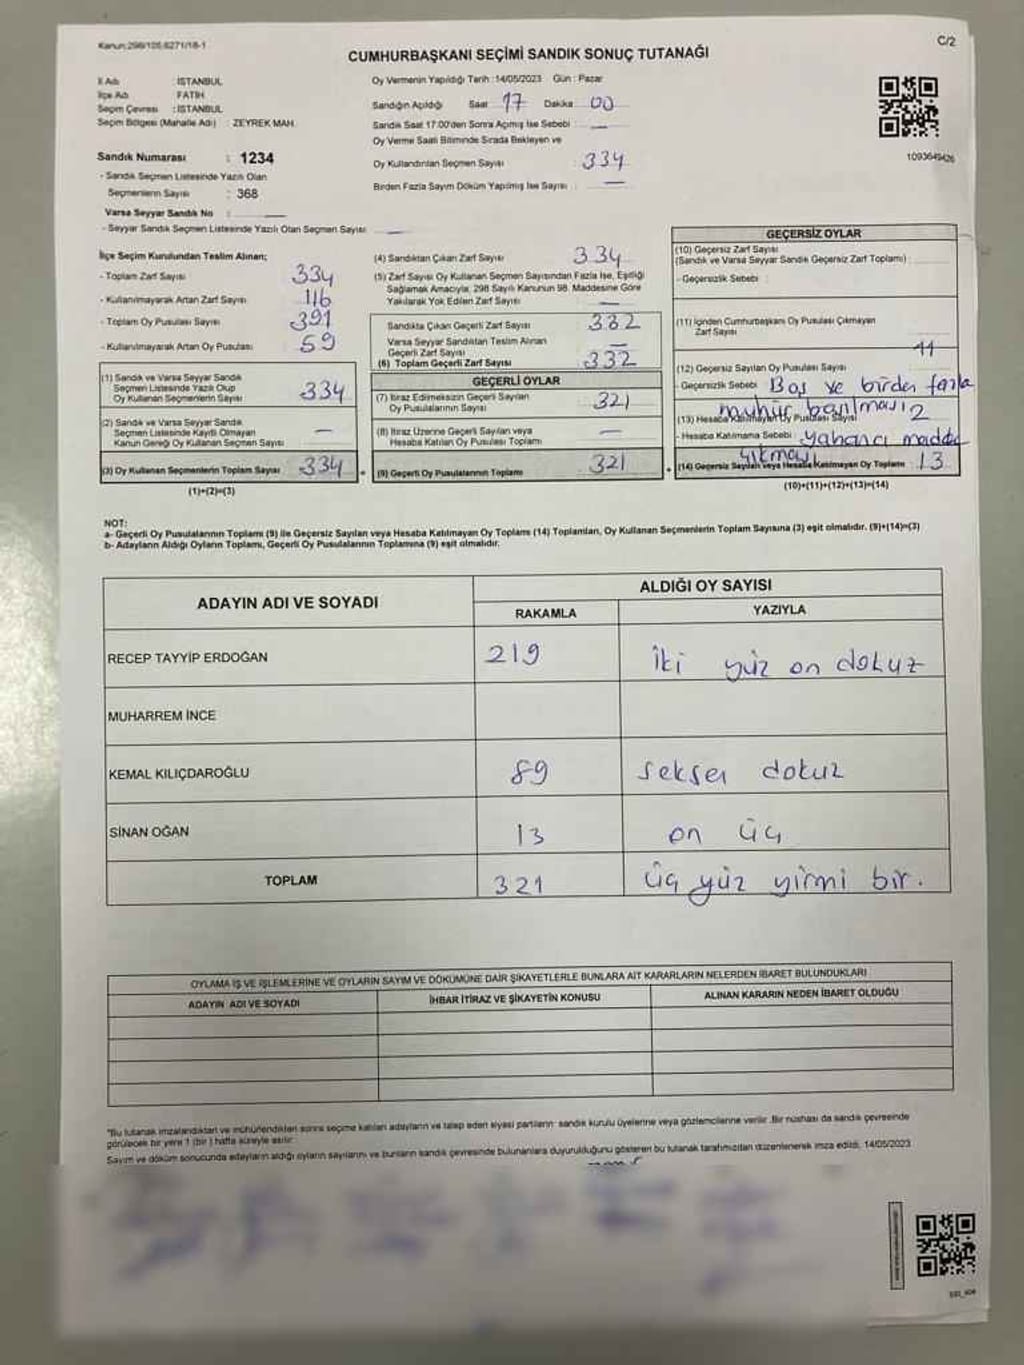 Kanun:298/105,6271/18-1
C/2
CUMHURBAŞKANI SEÇİMİ SANDIK SONUÇ TUTANAĞI
İl Adı : İSTANBUL
İlçe Adı : FATİH
Seçim Çevresi : İSTANBUL
Seçim Bölgesi (Mahalle Adı) : ZEYREK MAH.
Sandık Numarası : 1234
- Sandık Seçmen Listesinde Yazılı Olan
Seçmenlerin Sayısı : 368
Varsa Seyyar Sandık No :
- Seyyar Sandık Seçmen Listesinde Yazılı Olan Seçmen Sayısı
Oy Vermenin Yapıldığı Tarih :14/05/2023 Gün : Pazar
Sandığın Açıldığı Saat 17 Dakika 00
Sandık Saat 17.00'den Sonra Açılmış İse Sebebi : —
Oy Verme Saati Bitiminde Sırada Bekleyen ve
Oy Kullandırılan Seçmen Sayısı : 334
Birden Fazla Sayım Döküm Yapılmış İse Sayısı : —
1093649426
İlçe Seçim Kurulundan Teslim Alınan;
- Toplam Zarf Sayısı 334
- Kullanılmayarak Artan Zarf Sayısı 116
- Toplam Oy Pusulası Sayısı 391
- Kullanılmayarak Artan Oy Pusulası 59
(1) Sandık ve Varsa Seyyar Sandık
Seçmen Listesinde Yazılı Olup
Oy Kullanan Seçmenlerin Sayısı 334
(2) Sandık ve Varsa Seyyar Sandık
Seçmen Listesinde Kayıtlı Olmayan
Kanun Gereği Oy Kullanan Seçmen Sayısı —
(3) Oy Kullanan Seçmenlerin Toplam Sayısı 334
(1)+(2)=(3)
(4) Sandıktan Çıkan Zarf Sayısı 334
(5) Zarf Sayısı Oy Kullanan Seçmen Sayısından Fazla İse, Eşitliği
Sağlamak Amacıyla, 298 Sayılı Kanunun 98. Maddesine Göre
Yakılarak Yok Edilen Zarf Sayısı —
Sandıkta Çıkan Geçerli Zarf Sayısı 332
Varsa Seyyar Sandıktan Teslim Alınan
Geçerli Zarf Sayısı —
(6) Toplam Geçerli Zarf Sayısı 332
GEÇERLİ OYLAR
(7) İtiraz Edilmeksizin Geçerli Sayılan
Oy Pusulalarının Sayısı 321
(8) İtiraz Üzerine Geçerli Sayılan veya
Hesaba Katılan Oy Pusulası Toplamı —
(9) Geçerli Oy Pusulalarının Toplamı 321
GEÇERSİZ OYLAR
(10) Geçersiz Zarf Sayısı
(Sandık ve Varsa Seyyar Sandık Geçersiz Zarf Toplamı) :
- Geçersizlik Sebebi :
(11) İçinden Cumhurbaşkanı Oy Pusulası Çıkmayan
Zarf Sayısı
(12) Geçersiz Sayılan Oy Pusulası Sayısı 11
- Geçersizlik Sebebi : Boş ve birden fazla
mühür basılması
(13) Hesaba Katılmayan Oy Pusulası Sayısı 2
- Hesaba Katılmama Sebebi : yabancı madde
çıkması
(14) Geçersiz Sayılan veya Hesaba Katılmayan Oy Toplamı : 13
(10)+(11)+(12)+(13)=(14)
NOT:
a- Geçerli Oy Pusulalarının Toplamı (9) ile Geçersiz Sayılan veya Hesaba Katılmayan Oy Toplamı (14) Toplamları, Oy Kullanan Seçmenlerin Toplam Sayısına (3) eşit olmalıdır. (9)+(14)=(3)
b- Adayların Aldığı Oyların Toplamı, Geçerli Oy Pusulalarının Toplamına (9) eşit olmalıdır.
ADAYIN ADI VE SOYADI
ALDIĞI OY SAYISI
RAKAMLA YAZIYLA
RECEP TAYYİP ERDOĞAN 219 iki yüz on dokuz
MUHARREM İNCE
KEMAL KILIÇDAROĞLU 89 seksen dokuz
SİNAN OĞAN 13 on üç
TOPLAM 321 üç yüz yirmi bir.
OYLAMA İŞ VE İŞLEMLERİNE VE OYLARIN SAYIM VE DÖKÜMÜNE DAİR ŞİKAYETLERLE BUNLARA AİT KARARLARIN NELERDEN İBARET BULUNDUKLARI
ADAYIN ADI VE SOYADI İHBAR İTİRAZ VE ŞİKAYETİN KONUSU ALINAN KARARIN NEDEN İBARET OLDUĞU
"Bu tutanak imzalandıktan ve mühürlendikten sonra seçime katılan adayların ve talep eden siyasi partilerin sandık kurulu üyelerine veya gözlemcilerine verilir .Bir nüshası da sandık çevresinde
görülecek bir yere 1 (bir) hafta süreyle asılır.
Sayım ve döküm sonucunda adayların aldığı oyların sayılarını ve bunların sandık çevresinde bulunanlara duyurulduğunu gösteren bu tutanak tarafımızdan düzenlenerek imza edildi. 14/05/2023